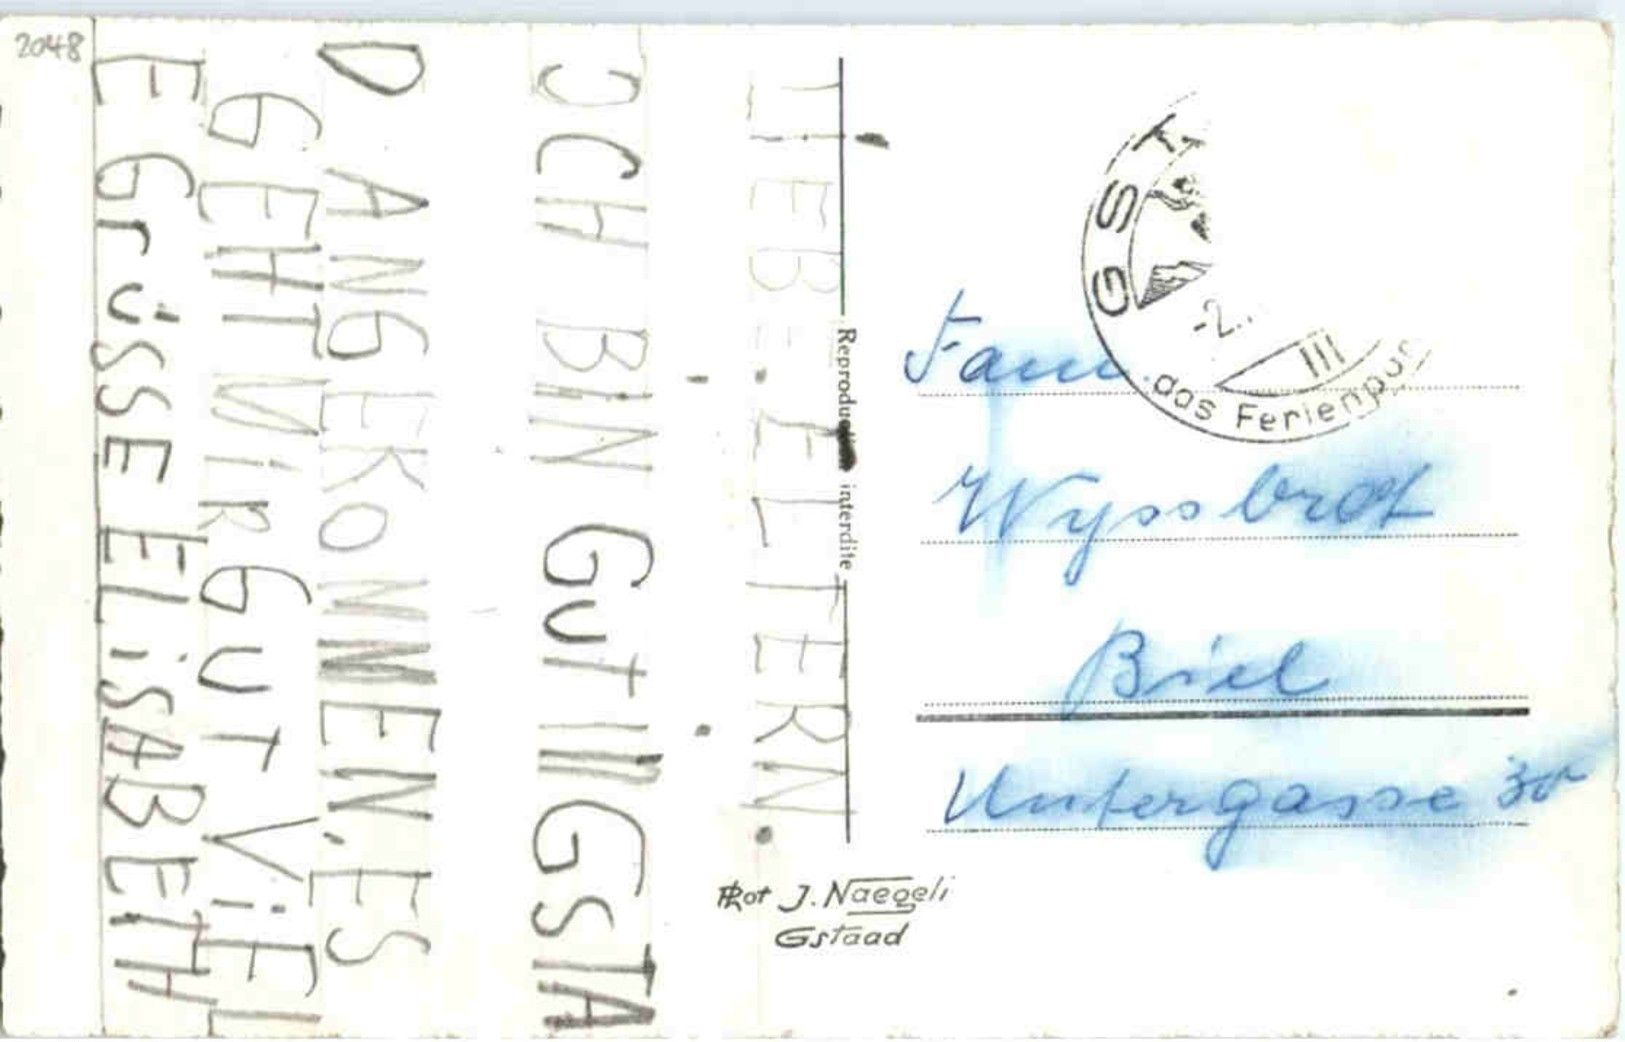 2048
LIEBE ELTERN.
JCH BiN GUT IN GSTA
D ANGEKOMMEN. ES
GEHT MiR GUT ViEL
E GrÜSSE ELiSABETH
Reproduction interdite
GST
-2.
III
das Ferienpar
Fam.
Wyssbrot
Biel
Untergasse 30
Phot J. Naegeli
Gstaad